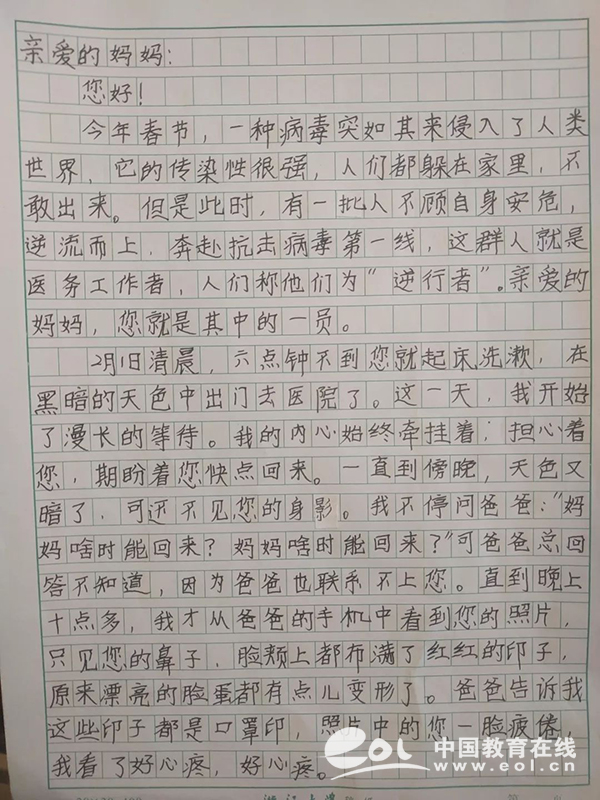 亲爱的妈妈：
您好！
今年春节，一种病毒突如其来侵入了人类
世界，它的传染性很强，人们都躲在家里，不
敢出来。但是此时，有一批人不顾自身安危，
逆流而上，奔赴抗击病毒第一线，这群人就是
医务工作者，人们称他们为“逆行者”。亲爱的
妈妈，您就是其中的一员。
2月1日清晨，六点钟不到您就起床洗漱，在
黑暗的天色中出门去医院了。这一天，我开始
了漫长的等待。我的内心始终牵挂着；担心着
您，期盼着您快点回来。一直到傍晚，天色又
暗了，可还不见您的身影。我不停问爸爸：“妈
妈啥时能回来？妈妈啥时能回来？”可爸爸总回
答不知道，因为爸爸也联系不上您。直到晚上
十点多，我才从爸爸的手机中看到您的照片，
只见您的鼻子，脸颊上都布满了红红的印子，
原来漂亮的脸蛋都有点儿变形了。爸爸告诉我
这些印子都是口罩印，照片中的您一脸疲倦
我看了好心疼，好心疼。
eol 中国教育在线
www.eol.cn